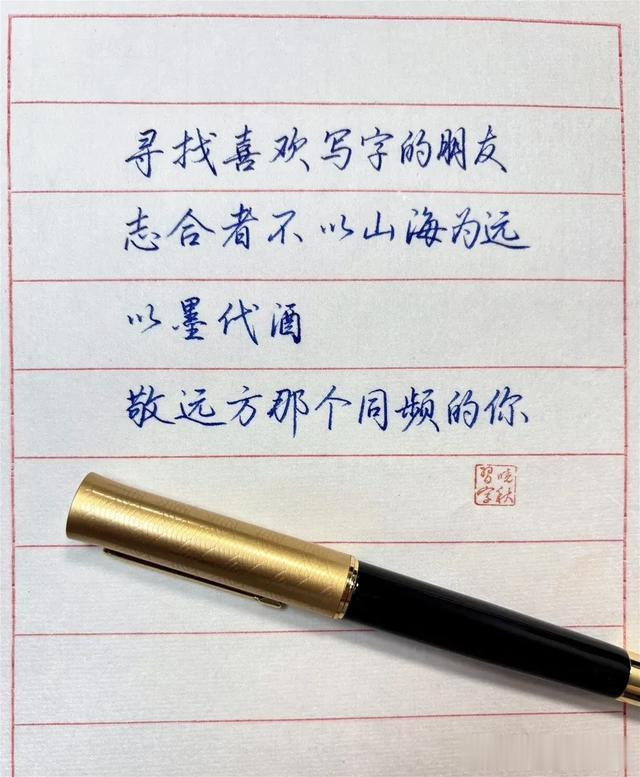 寻找喜欢写字的朋友
志合者不以山海为远
以墨代酒
敬远方那个同频的你
晓秋習字